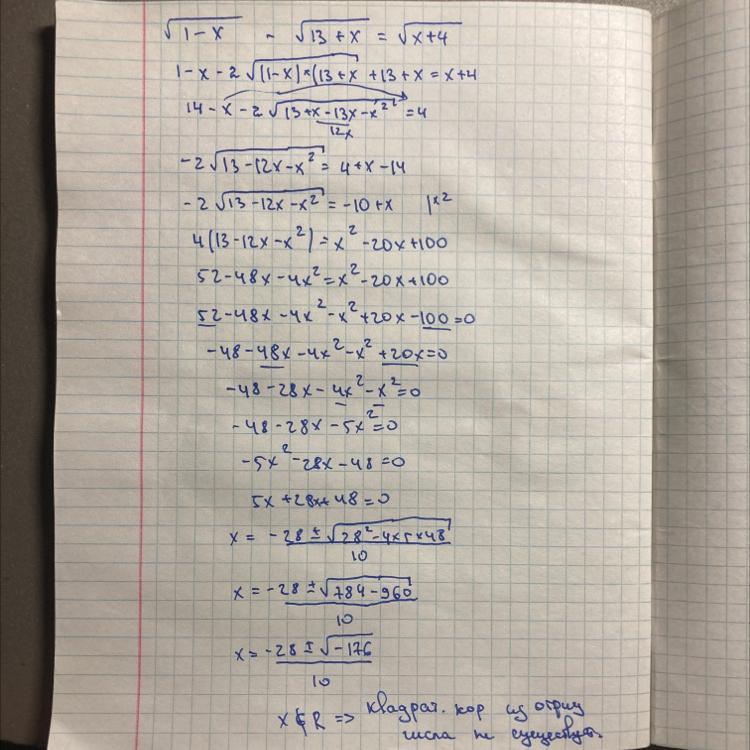 √(1-x) - √(13+x) = √(x+4)
1-x-2√((1-x)×(13+x) +13+x = x+4
14-x-2√(13+x-13x-x²) = 4
12x
-2√(13-12x-x²) = 4+x-14
-2√(13-12x-x²) = -10+x |x²
4(13-12x-x²) = x²-20x+100
52-48x-4x² = x²-20x+100
52-48x-4x²-x²+20x-100=0
-48-48x-4x²-x²+20x=0
-48-28x-4x²-x²=0
-48-28x-5x²=0
-5x²-28x-48=0
5x+28x+48=0
x = -28±√(28²-4×5×48)/10
x = -28±√(784-960)/10
x = -28±√(-176)/10
x∉R => квадрат. кор из отриц
числа не существует.